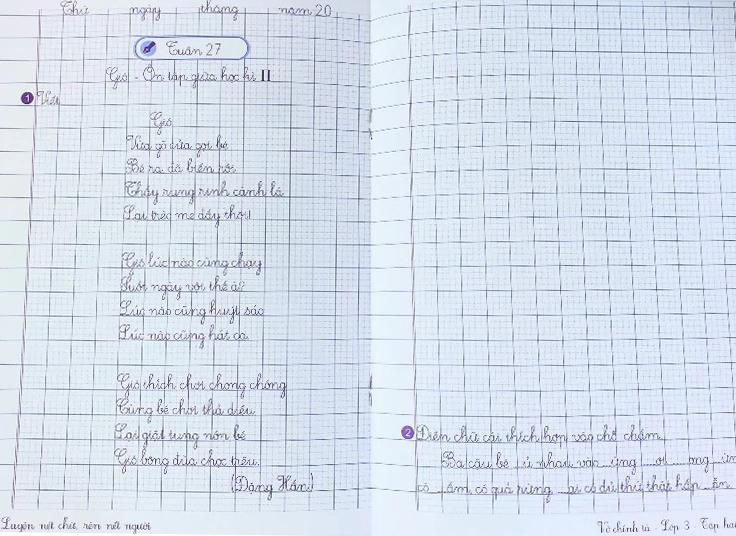 Thứ ngày tháng năm 20
Tuần 27
Gió - Ôn tập giữa học kì II
1 Viết
Gió
Vừa gõ cửa gọi bé
Bé ra đã biến rồi
Thấy rung rinh cành lá
Lại trèo me đấy thôi!
Gió lúc nào cũng chạy
Suốt ngày vội thế à?
Lúc nào cũng huýt sáo
Lúc nào cũng hát ca.
Gió thích chơi chong chóng
Cùng bé chơi thả diều
Lại giật tung nón bé
Gió bông đùa chọc trêu.
(Đặng Hấn)
2 Điền chữ cái thích hợp vào chỗ chấm.
Ba cậu bé ..ủ nhau vào ..ừng ..ơi ..ong ừn
có ..ấm, có quả rừng ..ại có đủ thứ thật hấp ..ẫn
Luyện nét chữ, rèn nết người
Vở chính tả - Lớp 3 - Tập hai